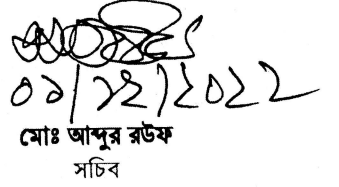 ০১/১২/২০২২
মোঃ আব্দুর রউফ
সচিব